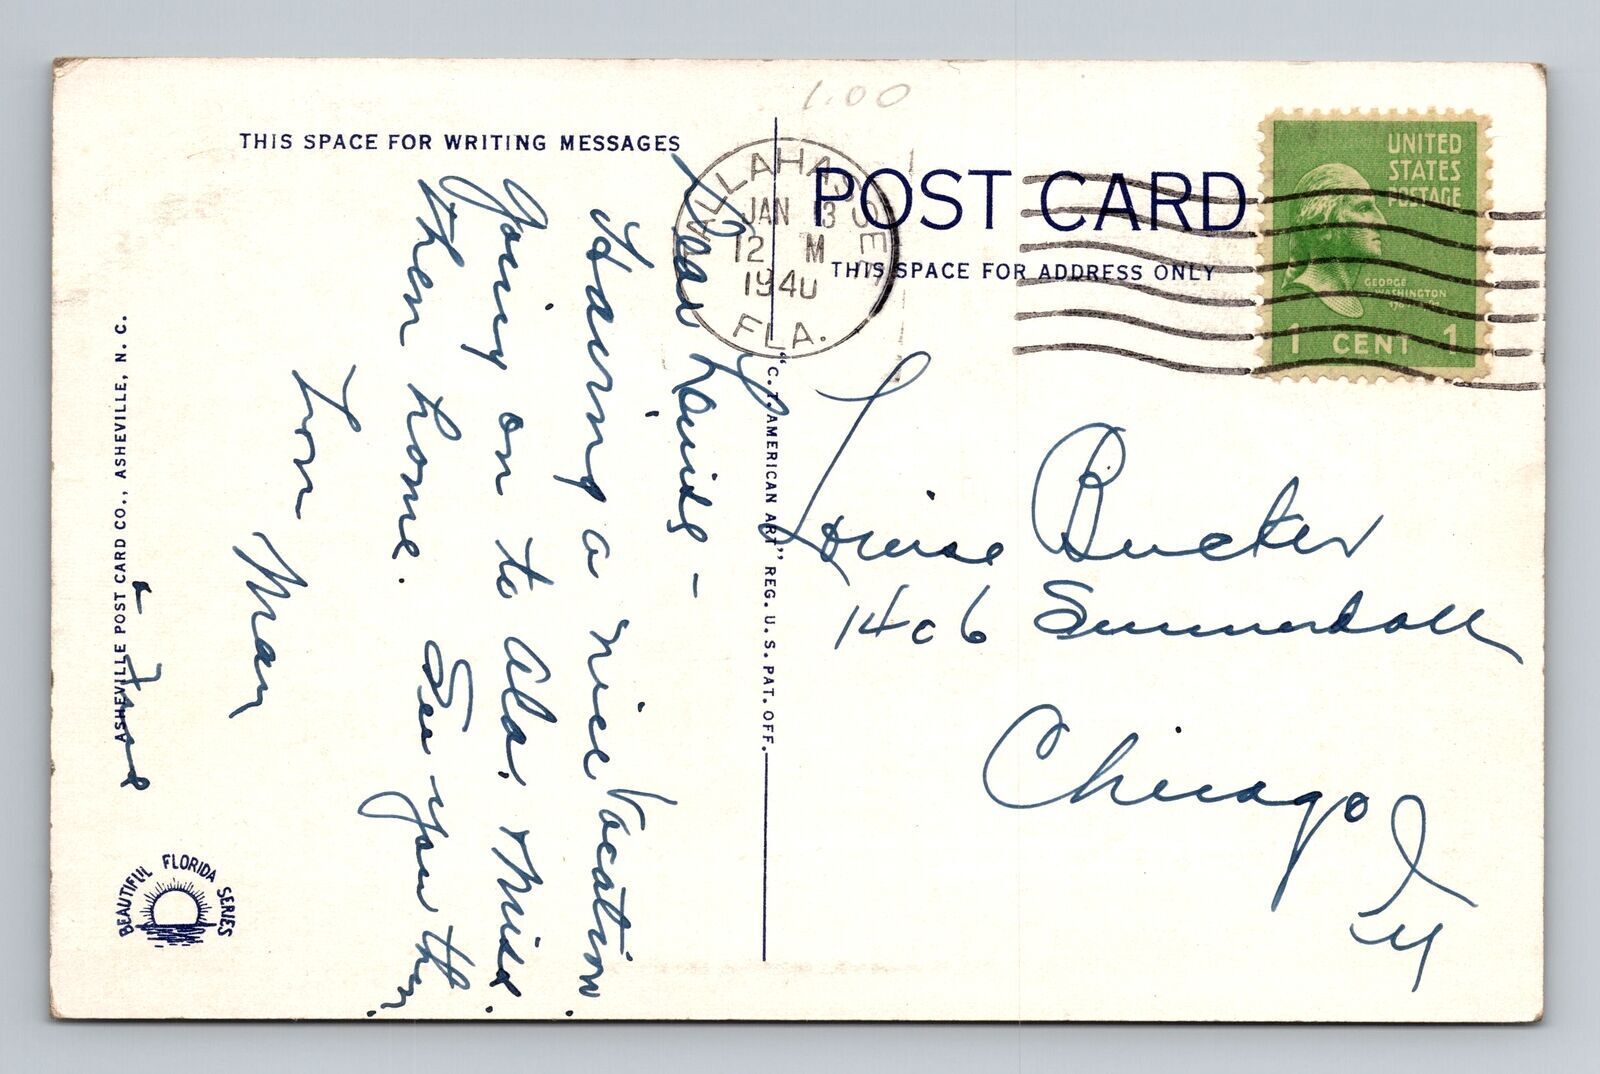 1.00
THIS SPACE FOR WRITING MESSAGES
POST CARD
THIS SPACE FOR ADDRESS ONLY
TALLAHASSEE
JAN 3
12 M
1940
FLA.
UNITED
STATES
POSTAGE
GEORGE
WASHINGTON
1 CENT 1
Dear Louise –
Having a nice Vacation.
Going on to Ala. + Miss.
then home. See you then.
Mary
Louise Bucker
1406
Chicago
Ill
"C.T. AMERICAN ART" REG. U.S. PAT. OFF.
ASHEVILLE POST CARD CO., ASHEVILLE, N. C.
BEAUTIFUL FLORIDA SERIES